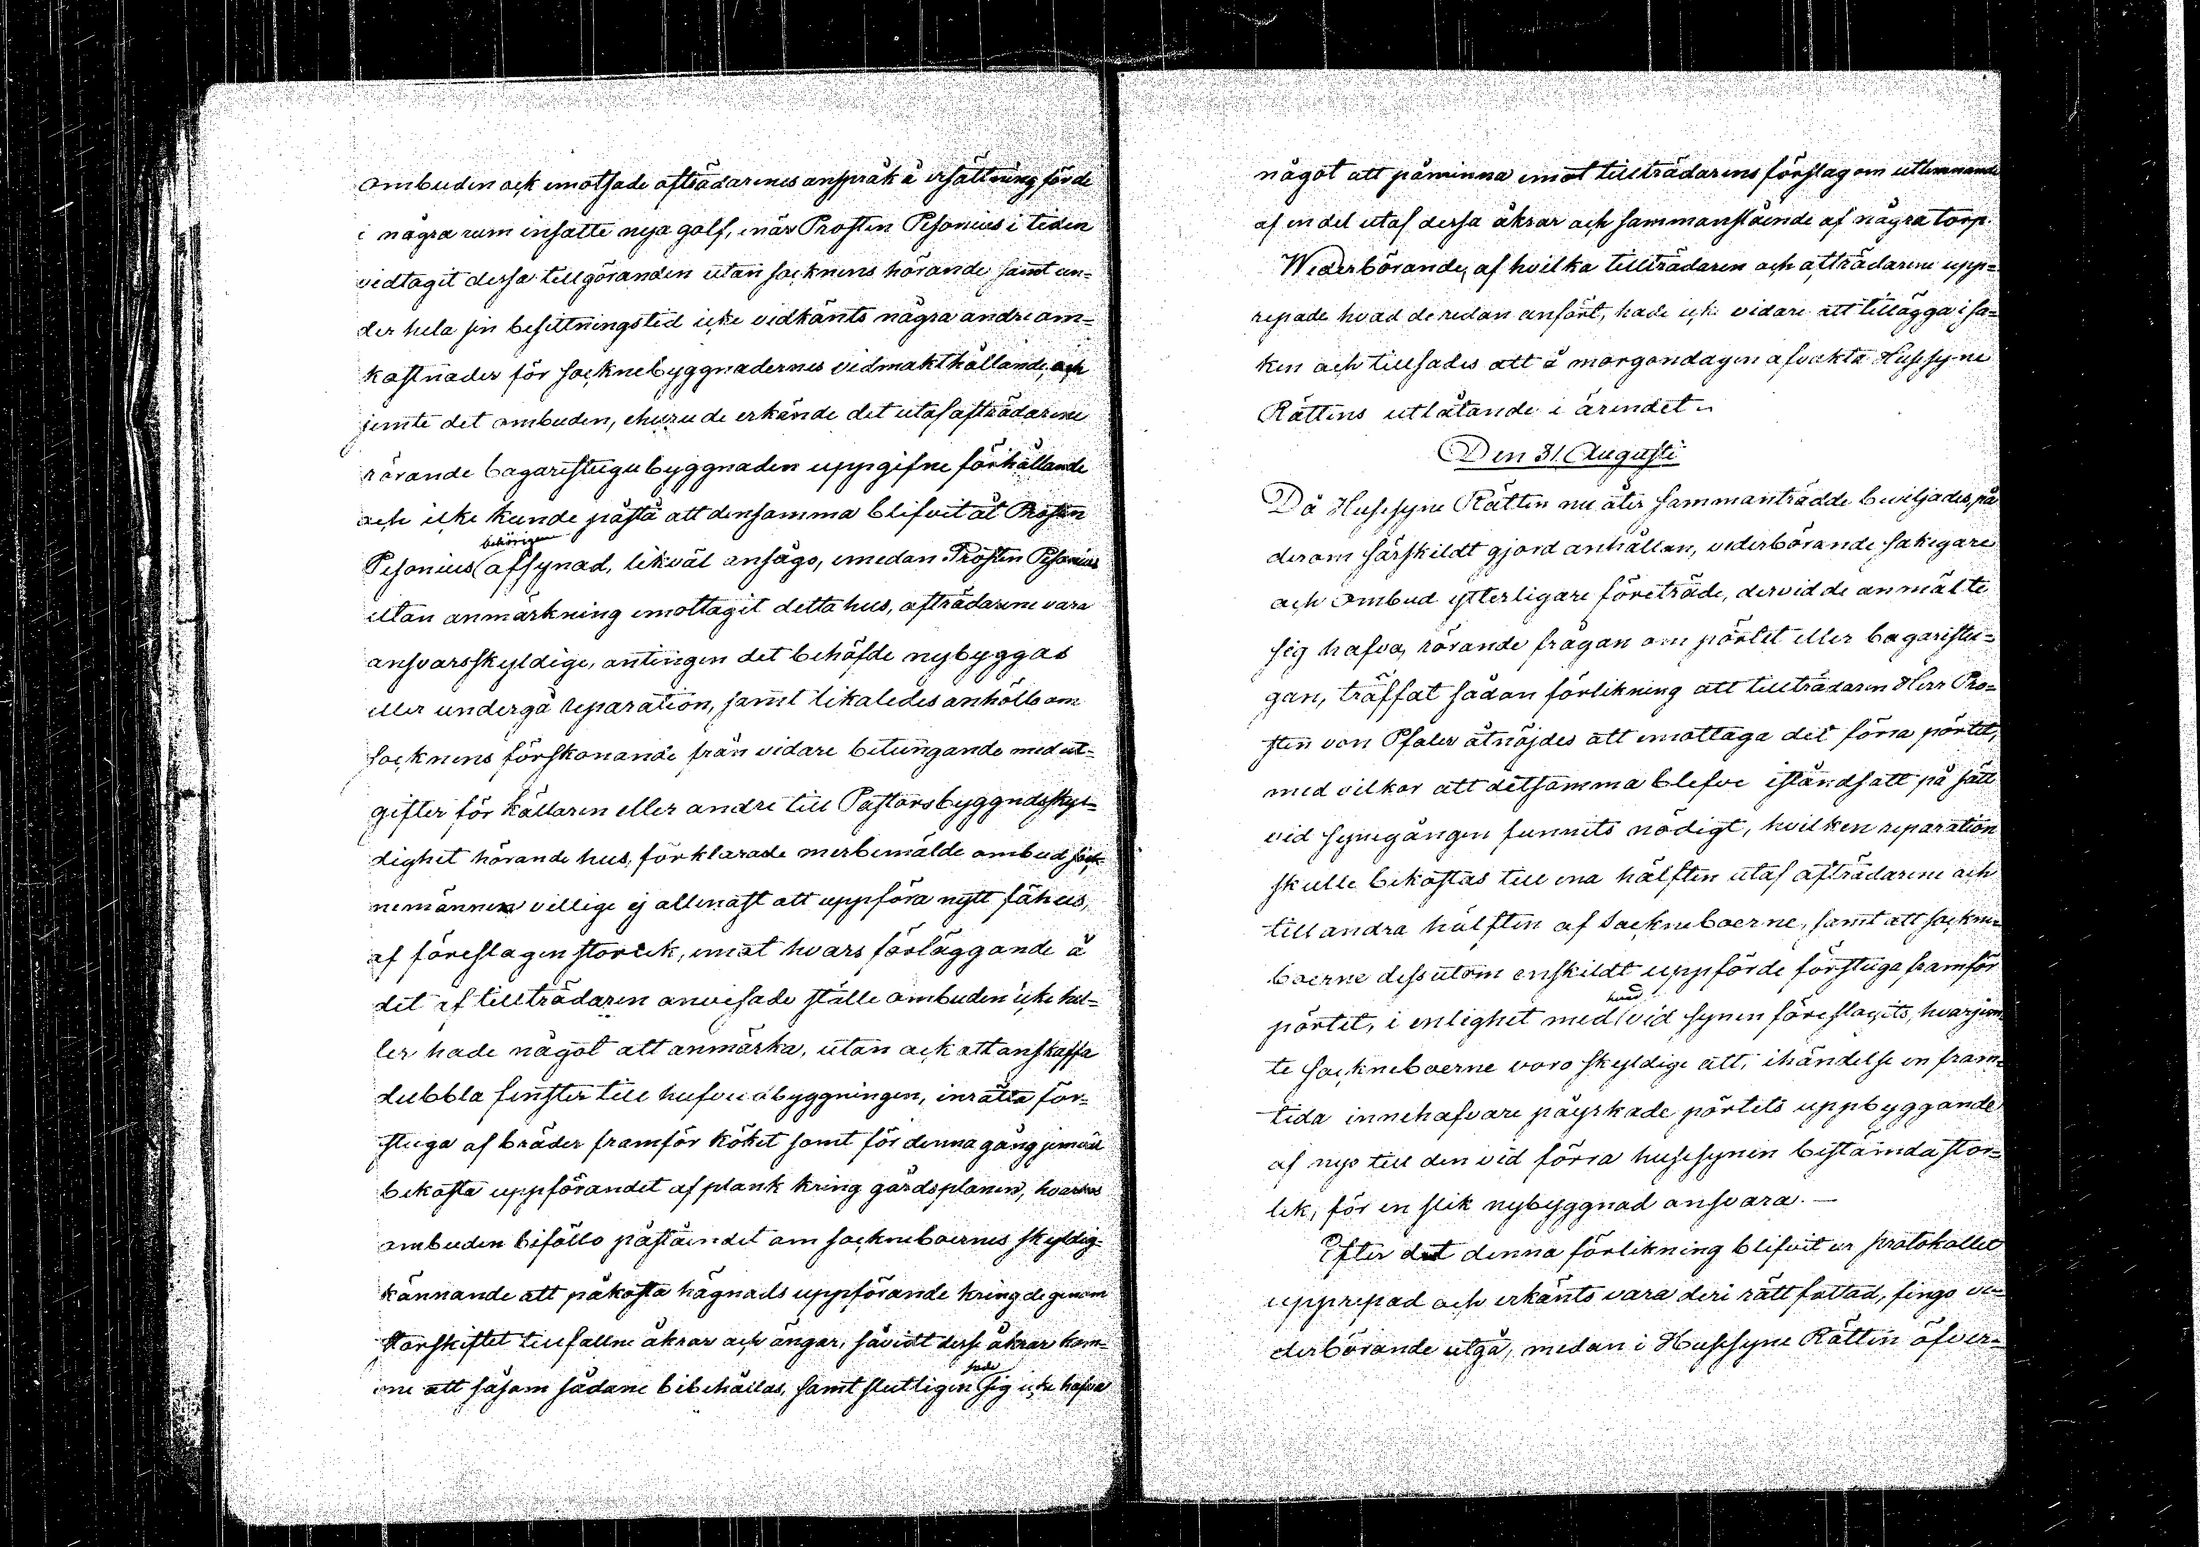 ombuden ock emotsade afträdarenes anspråk å ersättning för de
i några rum insatte nya golf, enär Prosten Pesonius i tiden
vidtagit dessa tillgöranden utan socknens hörande samt un-
der hela sin besittningstid icke vidkänts några andre om-
kostnader för socknebyggnadernes vidmakthållande, och
jemte det ombuden, ehuru de erkände det utaf afträdarene
rörande bagarestugubyggnaden uppgifne förhållande
och icke kunde påstå att densamma blifvit åt Prosten
behörigen
Pesonius afsynad, likväl ansågo, emedan Prosten Pesonius
utan anmärkning emottagit detta hus, afträdarene vara
ansvarsskyldige, antingen det behöfde nybyggas
eller undergå reparation, samt likaledes anhöllo om
socknens förskonande från vidare betungande med ut-
gifter för källaren eller andre till Pastorsbyggnadsskyl-
dighet hörande hus, förklarade merbemälde ombud sock-
nemännen villige ej allenast att uppföra nytt fähus,
af föreslagen storlek, emot hvars förläggande å
det af tillträdaren anvisade ställe ombuden icke hel-
ler hade något att anmärka, utan ock att anskaffa
dubbla fenster till hufvudbyggningen, inrätta för-
stuga af bräder framför köket samt för denna gång jemväl
bekosta uppförandet af plank kring gårdsplanen, hvarhos
ombuden biföllo påståendet om socknebornes skyldig-
kännande att påkosta hägnads uppförande kring de genom
Storskiftet tillfallne åkrar och ängar, såvidt desse åkrar kom-
sade
me att såsom sådane bibehållas, samt slutligen sig icke hafva
något att påminna emot tillträdarens förslag om utlemnande
af en del utaf dessa åkrar och sammanstående af några torp.
Wederbörande, af hvilka tillträdaren och afträdarene upp-
repade hvad de redan anfört, hade icke vidare att tillägga i sa-
ken och tillsades att å morgondagen afvakta Husesyne
Rättens utlåtande i ärendet.
Den 31 Augusti
Då Husesyne Rätten nu åter sammanträdde beviljades, på
derom särskildt gjord anhållan, vederbörande sakegare
och ombud ytterligare företräde, dervid de anmälte
sig hafva, rörande frågan om pörtet eller bagarestu-
gan, träffat sådan förlikning att tillträdaren Herr Pro-
sten von Pfaler åtnöjdes att emottaga det förra pörtet,
med vilkor att detsamma blefve iståndsatt på sätt
vid synegången funnits nödigt, hvilken reparation
skulle bekostas till ena hälften utaf afträdarene och
till andra hälften af Socknebоerne, samt att sockne-
boerne dessutom enskildt uppförde förstuga framför
hvad
pörtet, i enlighet med vid synen föreslagits, hvarjem-
te sockneboerne voro skyldige att, ihändelse en fram-
tida innehafvare påyrkade pörtets uppbyggande
af nyo till den vid förra husesynen bestämda stor-
lek, för en slik nybyggnad ansvara. —
Efter det denna förlikning blifvit ur protokollet
upprepad och erkänts vara deri rätt fattad, fingo ve-
derbörande utgå, medan i Husesyne Rätten öfver-